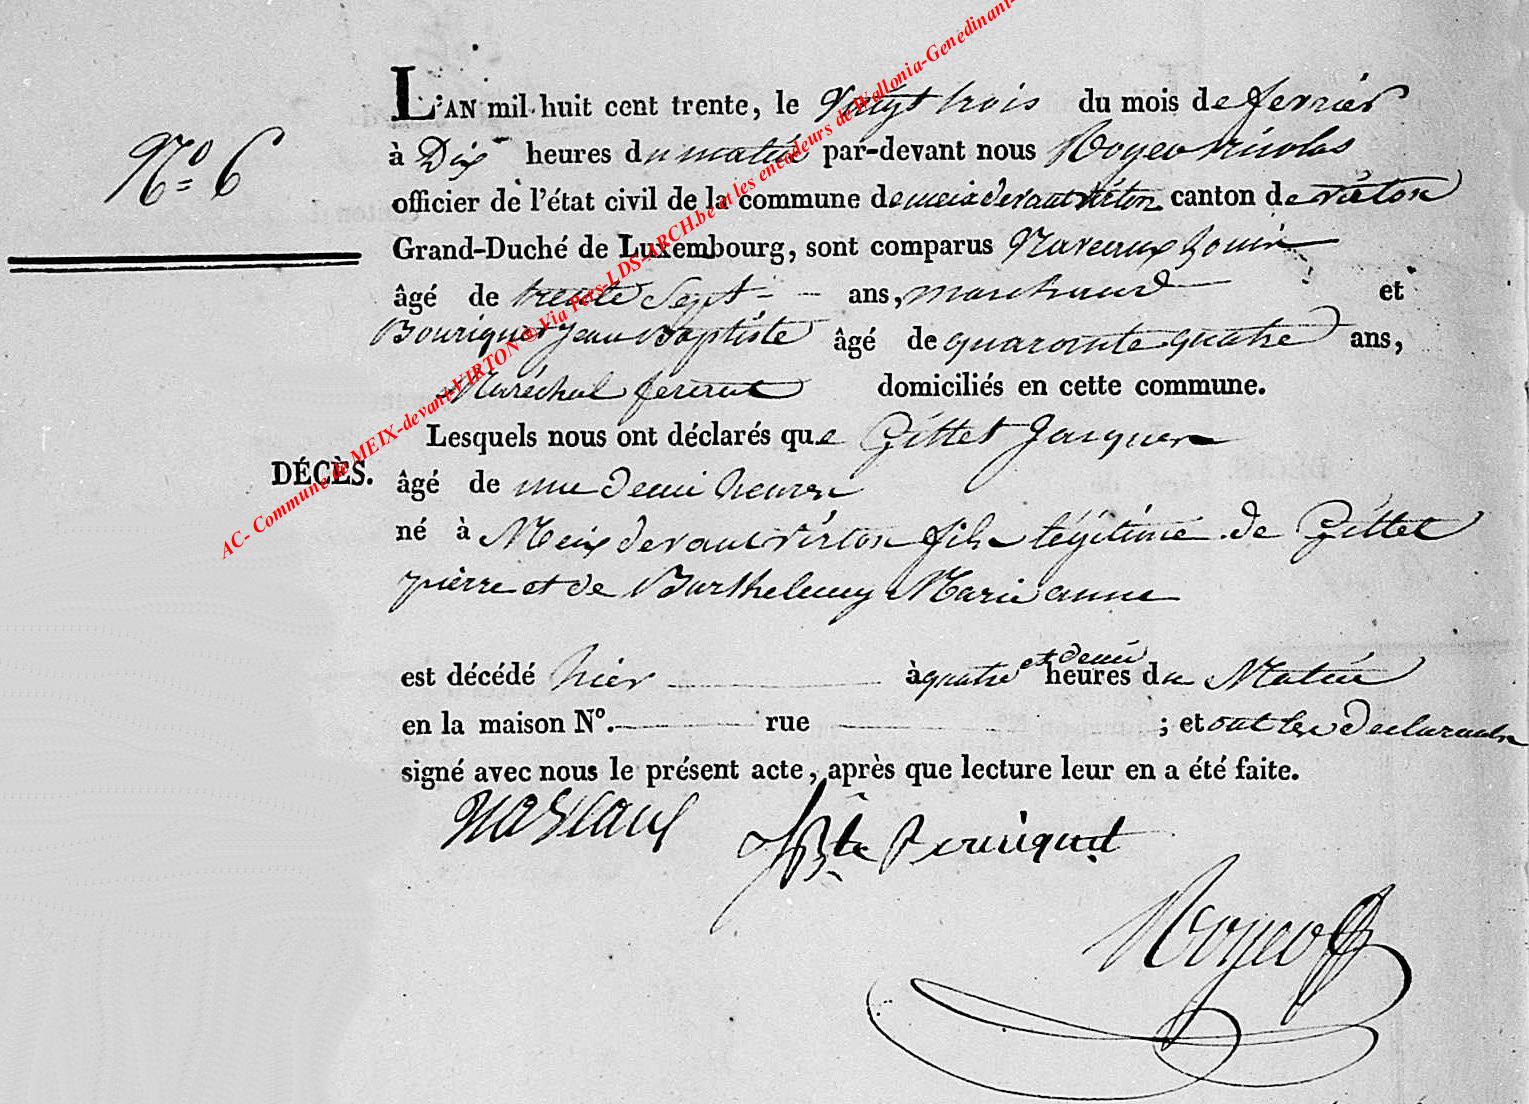 N.o 6
L'AN mil huit cent trente, le Vingt trois du mois de fevrier
à Dix heures du matin par-devant nous Royco Nicolas
officier de l'état civil de la commune de meix devant virton canton de virton
Grand-Duché de Luxembourg, sont comparus
âgé de trente sept ans, marchand et
Bouriquet Jean Baptiste âgé de quarante quatre ans,
Maréchal ferrant domiciliés en cette commune.
Lesquels nous ont déclarés que Gillet Jacques
DÉCÈS. âgé de une demi heure
né à Meix devant virton fils légitime de Gillet
pierre et de Barthelemy Marie anne
est décédé hier à quatre et demi heures du Matin
en la maison No. rue ; et ont les declarants
signé avec nous le présent acte, après que lecture leur en a été faite.
JBte
Royco
AC- Commune de MEIX-devant-VIRTON © Via Pers-LDS-ARCH.be et les encodeurs de Wallonia-Genedinant-